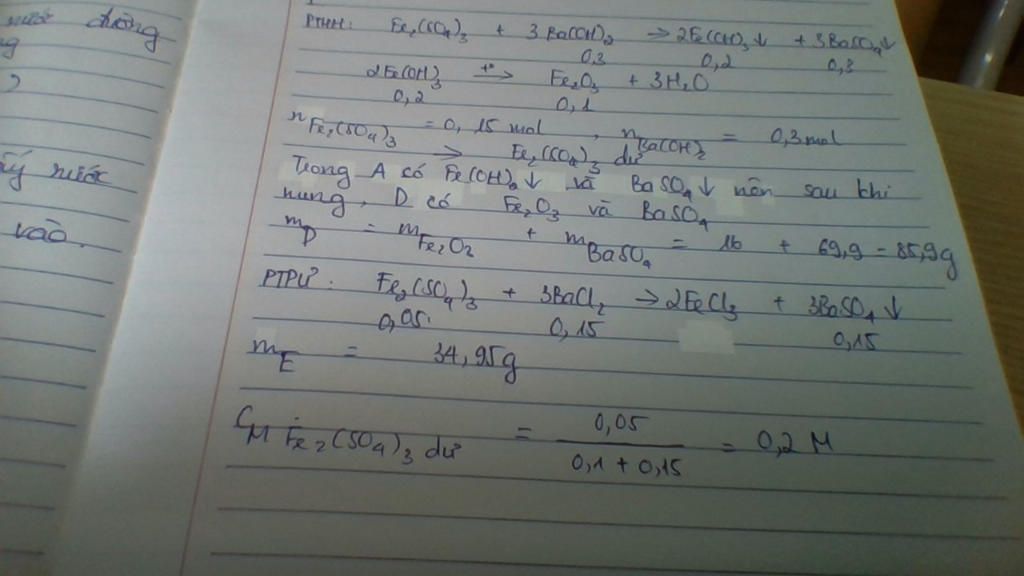 nước đường
g
)
ấy nước
vào.
PTHH: Fe₂(SO₄)₃ + 3Ba(OH)₂ → 2Fe(OH)₃↓ + 3BaSO₄↓
0,3 0,2 0,3
2Fe(OH)₃ t° → Fe₂O₃ + 3H₂O
0,2 0,1
n Fe₂(SO₄)₃ = 0,15 mol , n Ba(OH)₂ = 0,3 mol
=> Fe₂(SO₄)₃ dư
Trong A có Fe(OH)₃↓ và BaSO₄↓ nên sau khi
nung, D có Fe₂O₃ và BaSO₄
m D = m Fe₂O₃ + m BaSO₄ = 16 + 69,9 = 85,9g
PTPƯ: Fe₂(SO₄)₃ + 3BaCl₂ → 2FeCl₃ + 3BaSO₄↓
0,05 0,15 0,15
m E = 34,95g
C M Fe₂(SO₄)₃ dư = 0,05 / 0,1 + 0,15 = 0,2 M